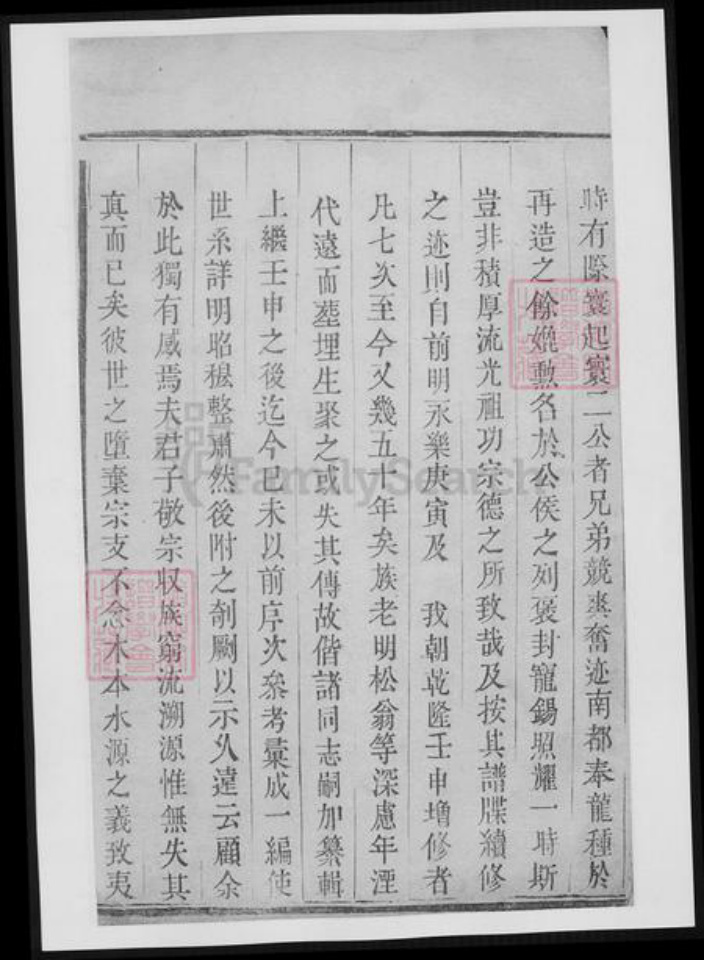 時有際寰起寰二公者兄弟競爽奮迹南都奉龍種於
再造之餘媲勲名於公侯之列褒封寵錫照耀一時斯
豈非積厚流光祖功宗德之所致哉及按其譜牒續修
之迹則自前明永樂庚寅及 我朝乾隆壬申增修者
凡七次至今又幾五十年矣族老明松翁等深慮年湮
代遠而塟埋生聚之或失其傳故偕諸同志嗣加纂輯
上繼壬申之後迄今巳未以前序次叅考彚成一編使
世系詳明昭穆整肅然後附之剞劂以示久遠云顧余
於此獨有感焉夫君子敬宗収族窮流溯源惟無失其
真而已矣彼世之墮棄宗支不念木本水源之義致夷
FamilySearch